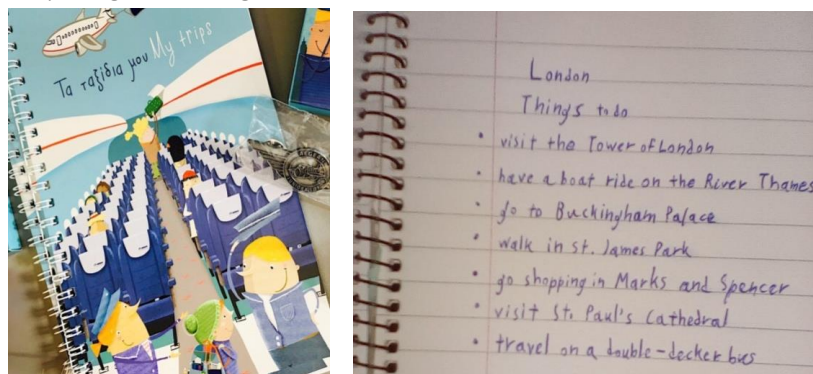 Τα ταξίδια μου My trips
London
Things to do
• visit the Tower of London
• have a boat ride on the River Thames
• go to Buckingham Palace
• walk in St. James Park
• go shopping in Marks and Spencer
• visit St. Paul's Cathedral
• travel on a double-decker bus